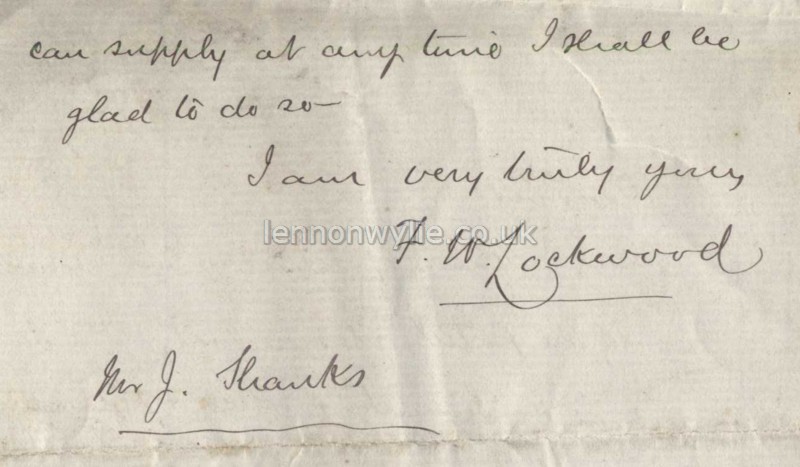 can supply at any time I shall be
glad to do so—
I am very truly yours
lennonwylie.co.uk
F. W. Lockwood
Mr J. Shanks